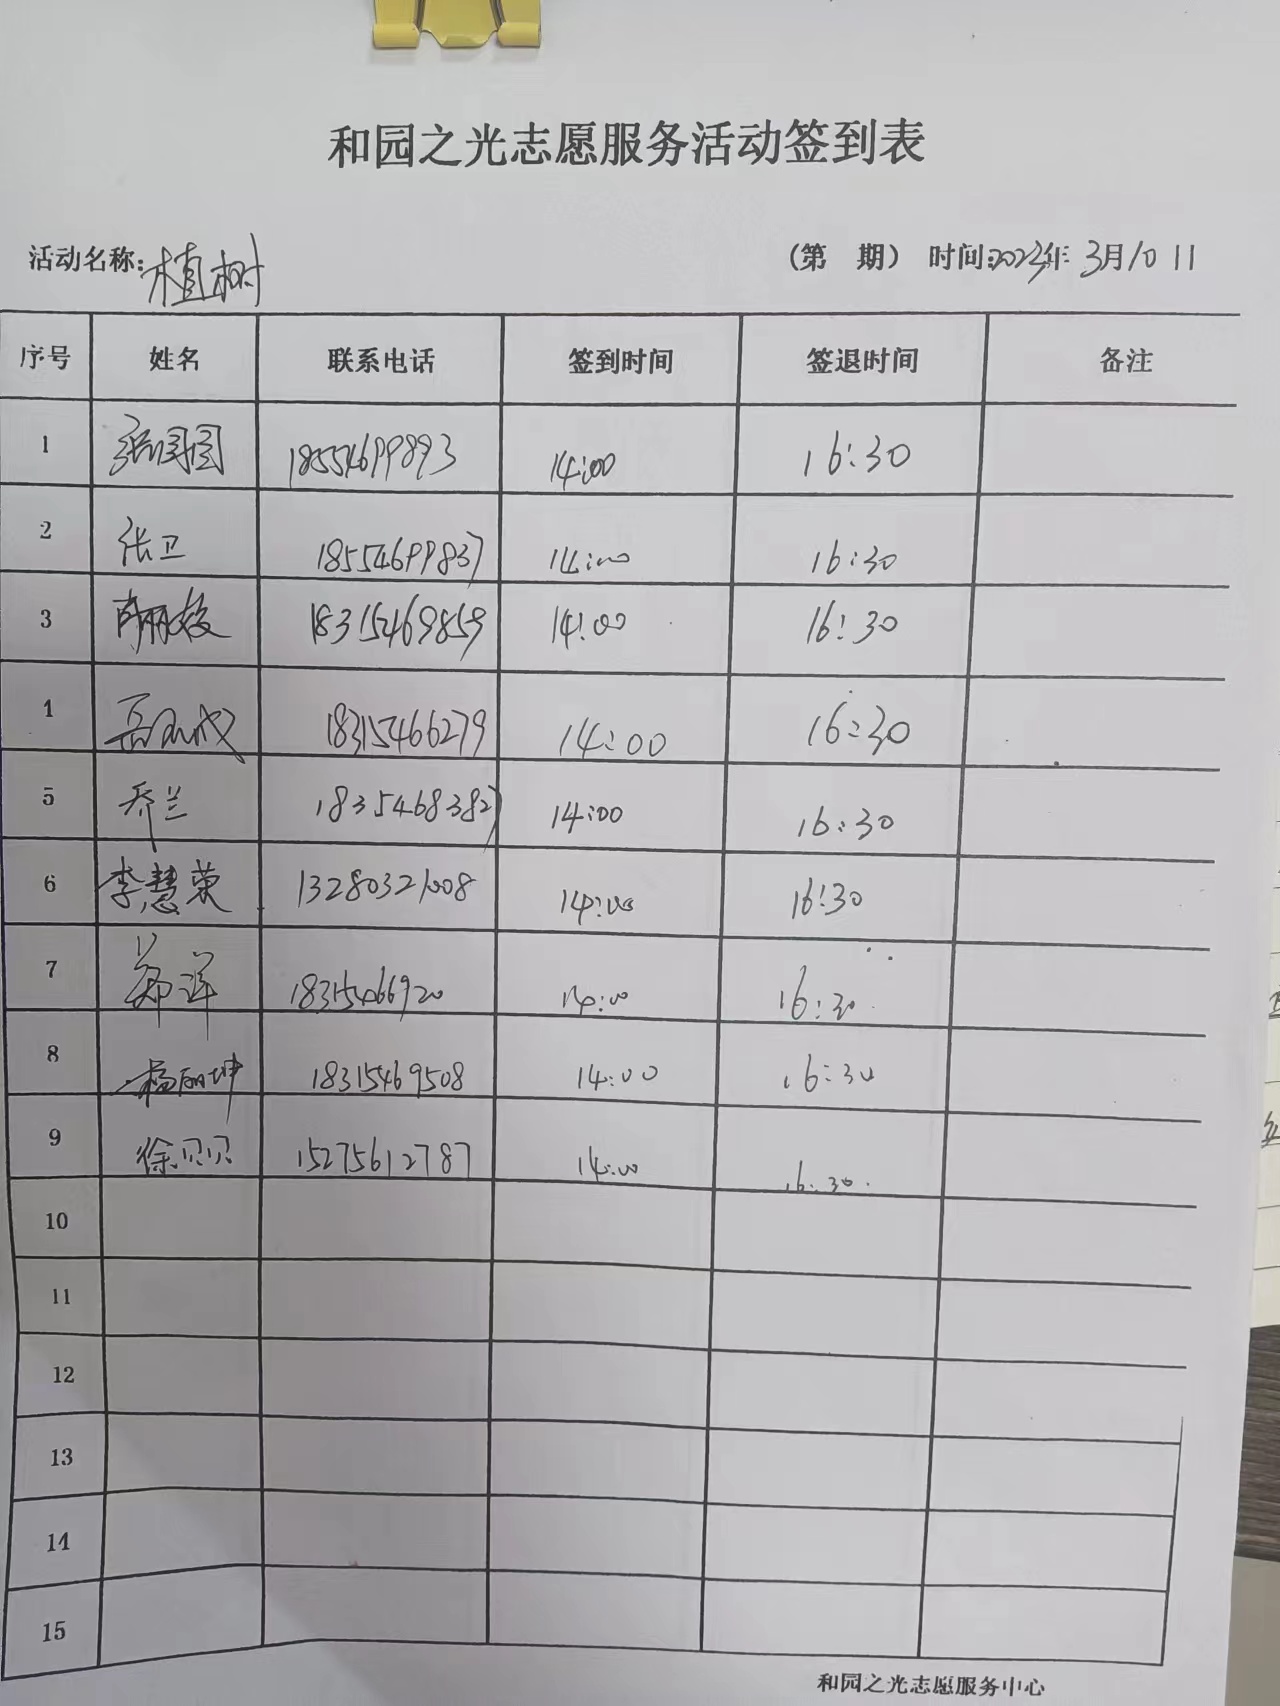 和园之光志愿服务活动签到表
活动名称:植树 (第 期) 时间:2023年3月10日
序号 姓名 联系电话 签到时间 签退时间 备注
1 18554699893 14:00 16:30
2 张卫 18554699837 14:00 16:30
3 18315469859 14:00 16:30
4 18315466279 14:00 16:30
5 乔兰 14:00 16:30
6 李慧荣 13280321008 14:00 16:30
7 郑洋 18315466920 14:00 16:30
8 杨丽坤 18315469508 14:00 16:30
9 徐贝贝 15275612787 14:00 16:30
10
11
12
13
14
15
和园之光志愿服务中心